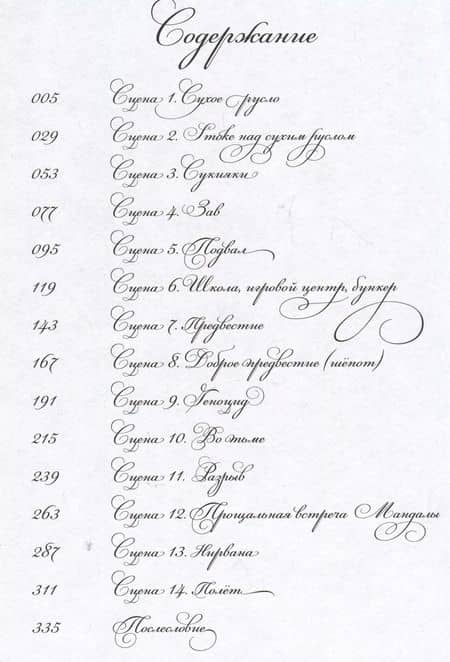 Содержание
005 Сцена 1. Сухое русло
029 Сцена 2. над сухим руслом
053 Сцена 3. Сукияки
077 Сцена 4. Зав
095 Сцена 5. Подвал
119 Сцена 6. Школа, игровой центр, бункер
143 Сцена 7. Предвестие
167 Сцена 8. Доброе предвестие (шёпот)
191 Сцена 9. Геноцид
215 Сцена 10. Во тьме
239 Сцена 11. Разрыв
263 Сцена 12. Прощальная встреча Мандалы
287 Сцена 13. Нирвана
311 Сцена 14. Полёт
335 Послесловие